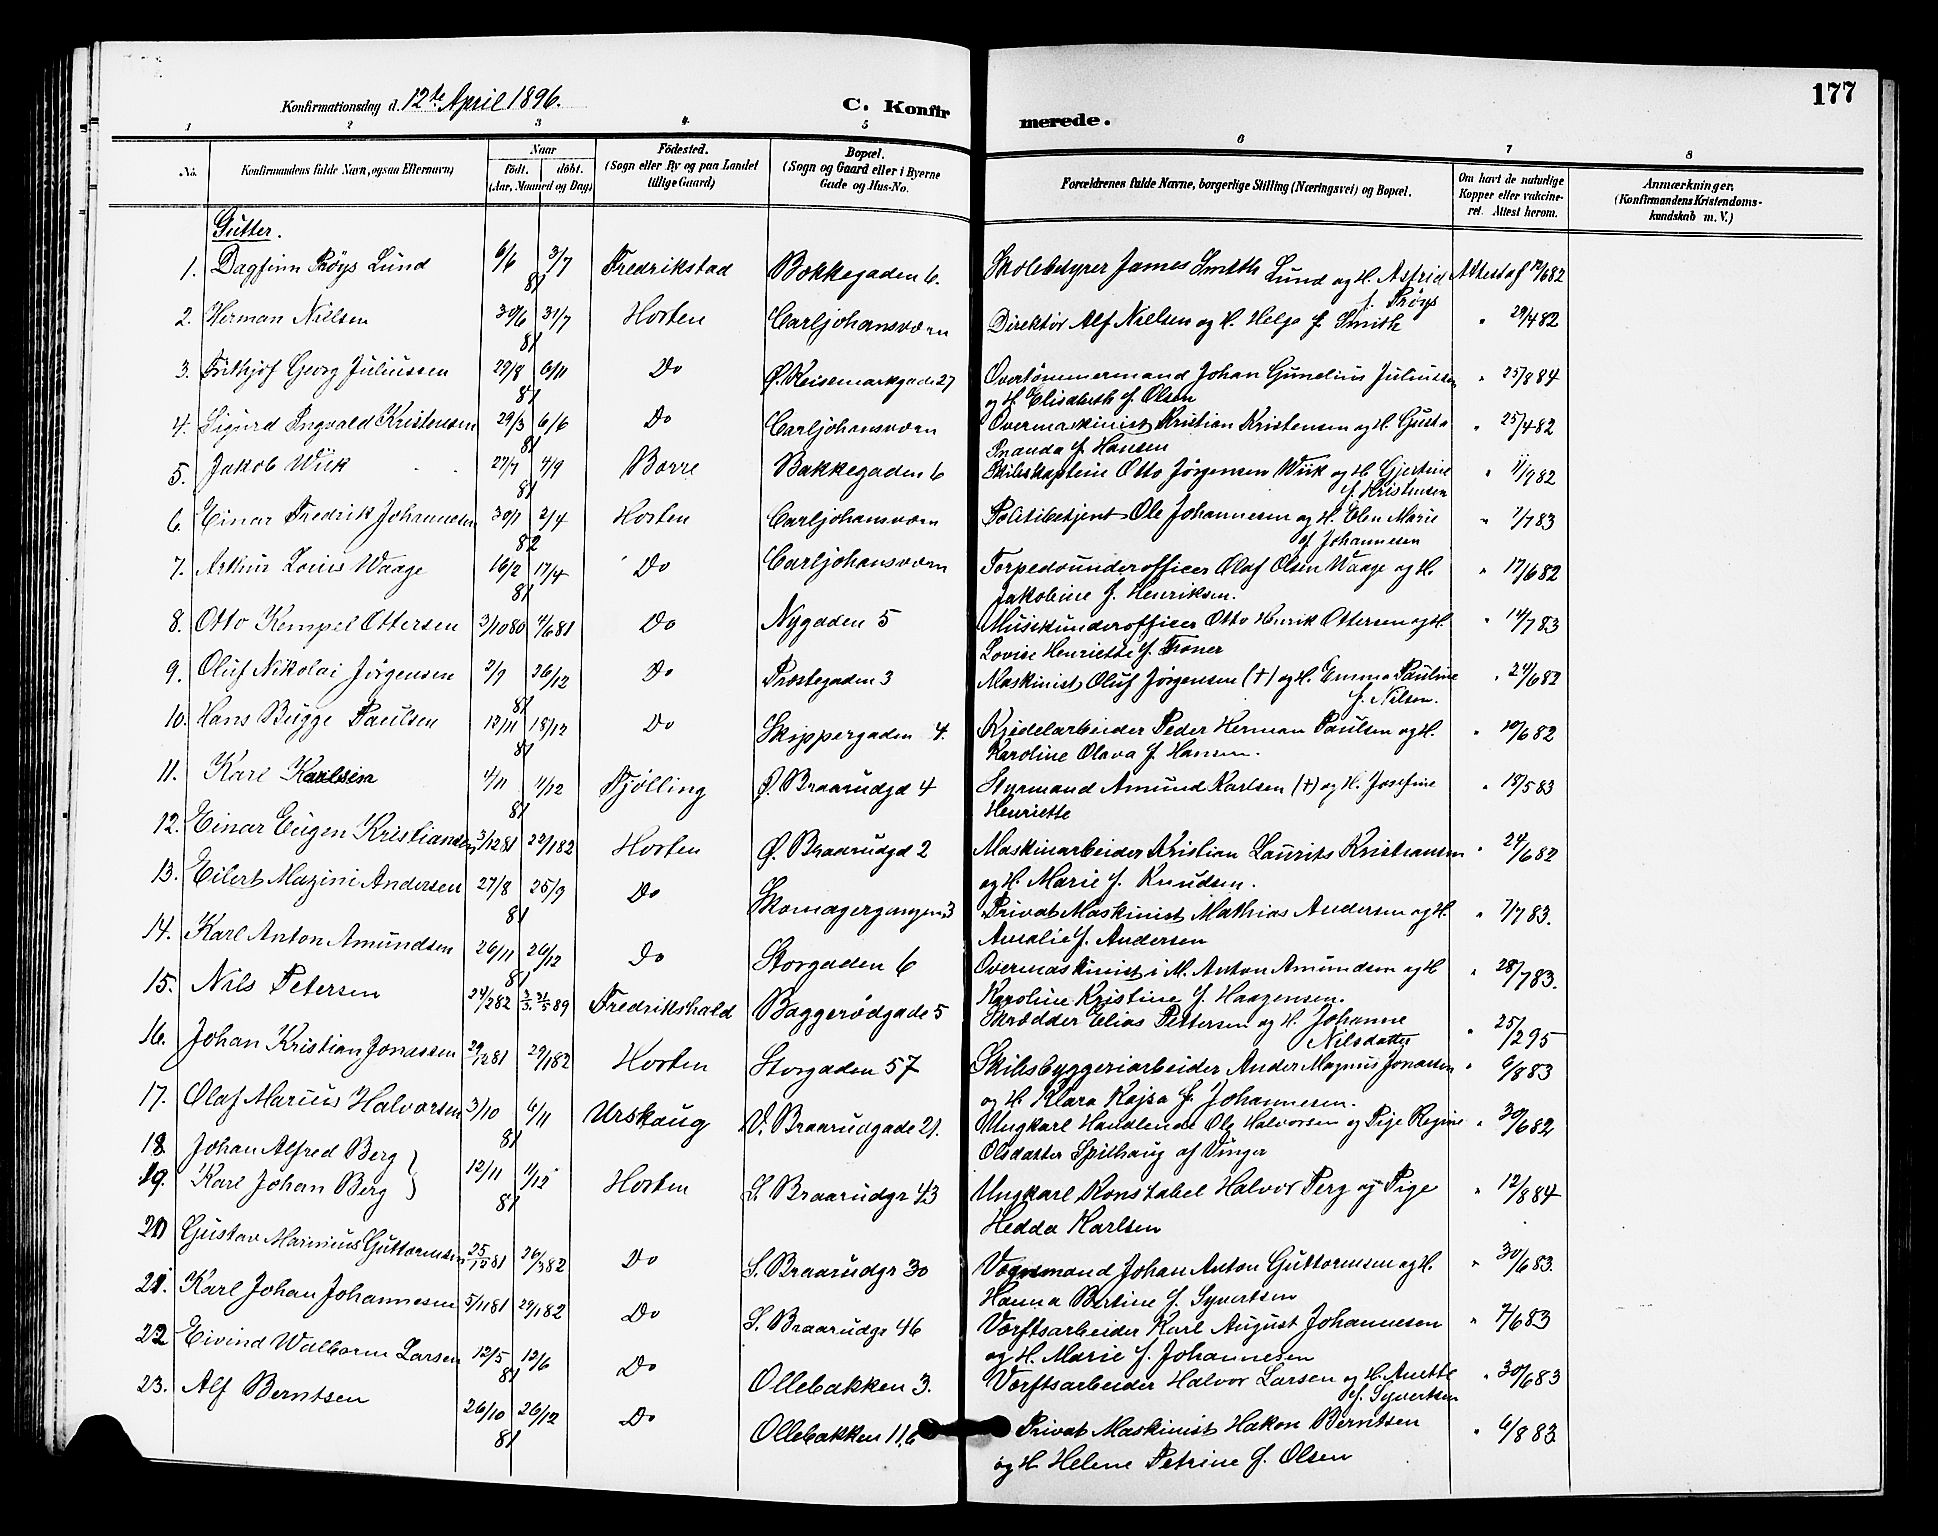 177
Konfirmationsdag d. 12te April 1896.
C. Konfirmerede.
1 2 3 4 5 6 7 8
No. Konfirmandens fulde Navn, ogsaa Efternavn) Naar født. døbt. (Aar, Maaned og Dag) Födested. (Sogn eller By og paa Landet tillige Gaard) Bopæl. (Sogn og Gaard eller i Byerne Gade og Hus-No. Forældrenes fulde Navne, borgerlige Stilling (Næringsvei) og Bopæl. Om havt de naturlige Kopper eller vakcineret. Attest herom. Anmærkninger. (Konfirmandens Kristendomskundskab m. V.)
Gutter.
1. Dagfinn Prøys Lund 6/6 3/7 81 Fredrikstad Bakkegaden 6. Skolebestyrer James Smith Lund og H. Astrid f. Prøys Attest af 12/6 82
2. Herman Nielsen 30/6 31/7 81 Horten Carljohansværn Direktør Alf Nielsen og H. Helga f. Smith " 29/4 82
3. Frithjof Georg Juliussen 29/8 6/11 81 Do Ø. Keisemarkgade 27 Overtømmermand Johan Gunelius Juliussen og H. Elisabeth f. Olsen " 25/8 84
4. Sigurd Ingvald Kristensen 29/3 6/6 81 Do Carljohansværn Overmaskinist Kristian Kristensen og H. Gusta Ananda f. Hansen " 25/4 82
5. Jakob Wiik 27/7 4/9 81 Borre Bakkegaden 6 Skibskaptein Otto Jørgensen Wiik og H. Gjertine f. Kristensen " 11/9 82
6. Einar Fredrik Johannesen 30/1 2/4 82 Horten Carljohansværn Politibetjent Ole Johannesen og H. Elen Marie f. Johannesen " 7/7 83
7. Arthur Louis Waage 16/2 17/4 81 Do Carljohansværn Torpedounderofficer Olaf Olsen Waage og H. Jakobine f. Henriksen. " 17/6 82
8. Otto Kempel Ottersen 3/10 80 4/6 81 Do Nygaden 5 Musikunderofficer Otto Henrik Ottersen og H. Lovise Henriette f. Troner " 14/7 83
9. Oluf Nikolai Jörgensen 2/9 26/12 81 Do Prestegaden 3 Maskinist Oluf Jørgensen (†) og H. Emma Pauline f. Nilsen. " 24/6 82
10. Hans Bugge Paulsen 12/11 18/12 81 Do Skippergaden 4. Kjedelarbeider Peder Herman Paulsen og H. Karoline Olava f. Hansen. " 10/6 82
11. Karl Karlsen 4/11 4/12 81 Tjølling Ø. Braarudgd 4 Styrmand Amund Karlsen (†) og H. Josefine Henriette " 18/5 83
12. Einar Eugen Kristiansen 3/12 81 22/1 82 Horten Ø. Braarudgd 2 Maskinarbeider Kristian Laurits Kristiansen og H. Marie f. Knudsen. " 24/6 82
13. Eilert Magini Andersen 27/8 25/9 81 Do Skomagergangen 3 Privat Maskinist Mathias Andersen og H. Amalie f. Andersen " 7/7 83.
14. Karl Anton Amundsen 26/11 26/12 81 Do Storgaden 6 Overmaskinist i M. Anton Amundsen og H Karoline Kristine f. Haagensen. " 28/7 83.
15. Nils Petersen 24/2 82 89 Fredrikshald Baggerødgade 5 Skrædder Elias Pettersen og H. Johanne Nilsdatter " 25/2 95
16. Johan Kristian Jonassen 29/12 81 29/1 82 Horten Storgaden 57 Skibsbyggeriarbeider Ander Magnus Jonassen og H Klara Kajsa f. Johannesen. " 6/8 83
17. Olaf Marius Halvorsen 3/10 6/11 81 Urskaug V. Braarudgade 21. Ungkarl Handlende Ole Halvorsen og Pige Regine Olsdatter Spilhaug af Vinger " 30/6 82
18 Johan Alfred Berg }
19. Karl Johan Berg } 12/11 11/12 81 Horten L. Braarudgr 43 Ungkarl Konstabel Halvor Berg og Pige Hedda Karlsen " 12/8 84
20 Gustav Marinius Guttormsen 25/12 81 26/3 82 Do L. Braarudgr 30 Vognmand Johan Anton Guttormsen og H. Hanna Bertine f. Syvertsen " 30/6 83.
21. Karl Johan Johannesen 5/11 81 29/1 82 Do L. Braarudgr 46 Værftsarbeider Karl August Johannesen og H. Marie f. Johannesen " 7/6 83
22 Eivind Walborm Larsen 12/5 12/6 81 Do Ollebakken 3. Værftsarbeider Halvor Larsen og H. Anette f. Syvertsen " 30/6 83
23. Alf Berntsen 26/10 26/12 81 Do Ollebakken 11,6 Privat Maskinist Hakon Berntsen og H Helene Petrine f. Olsen " 6/8 83.